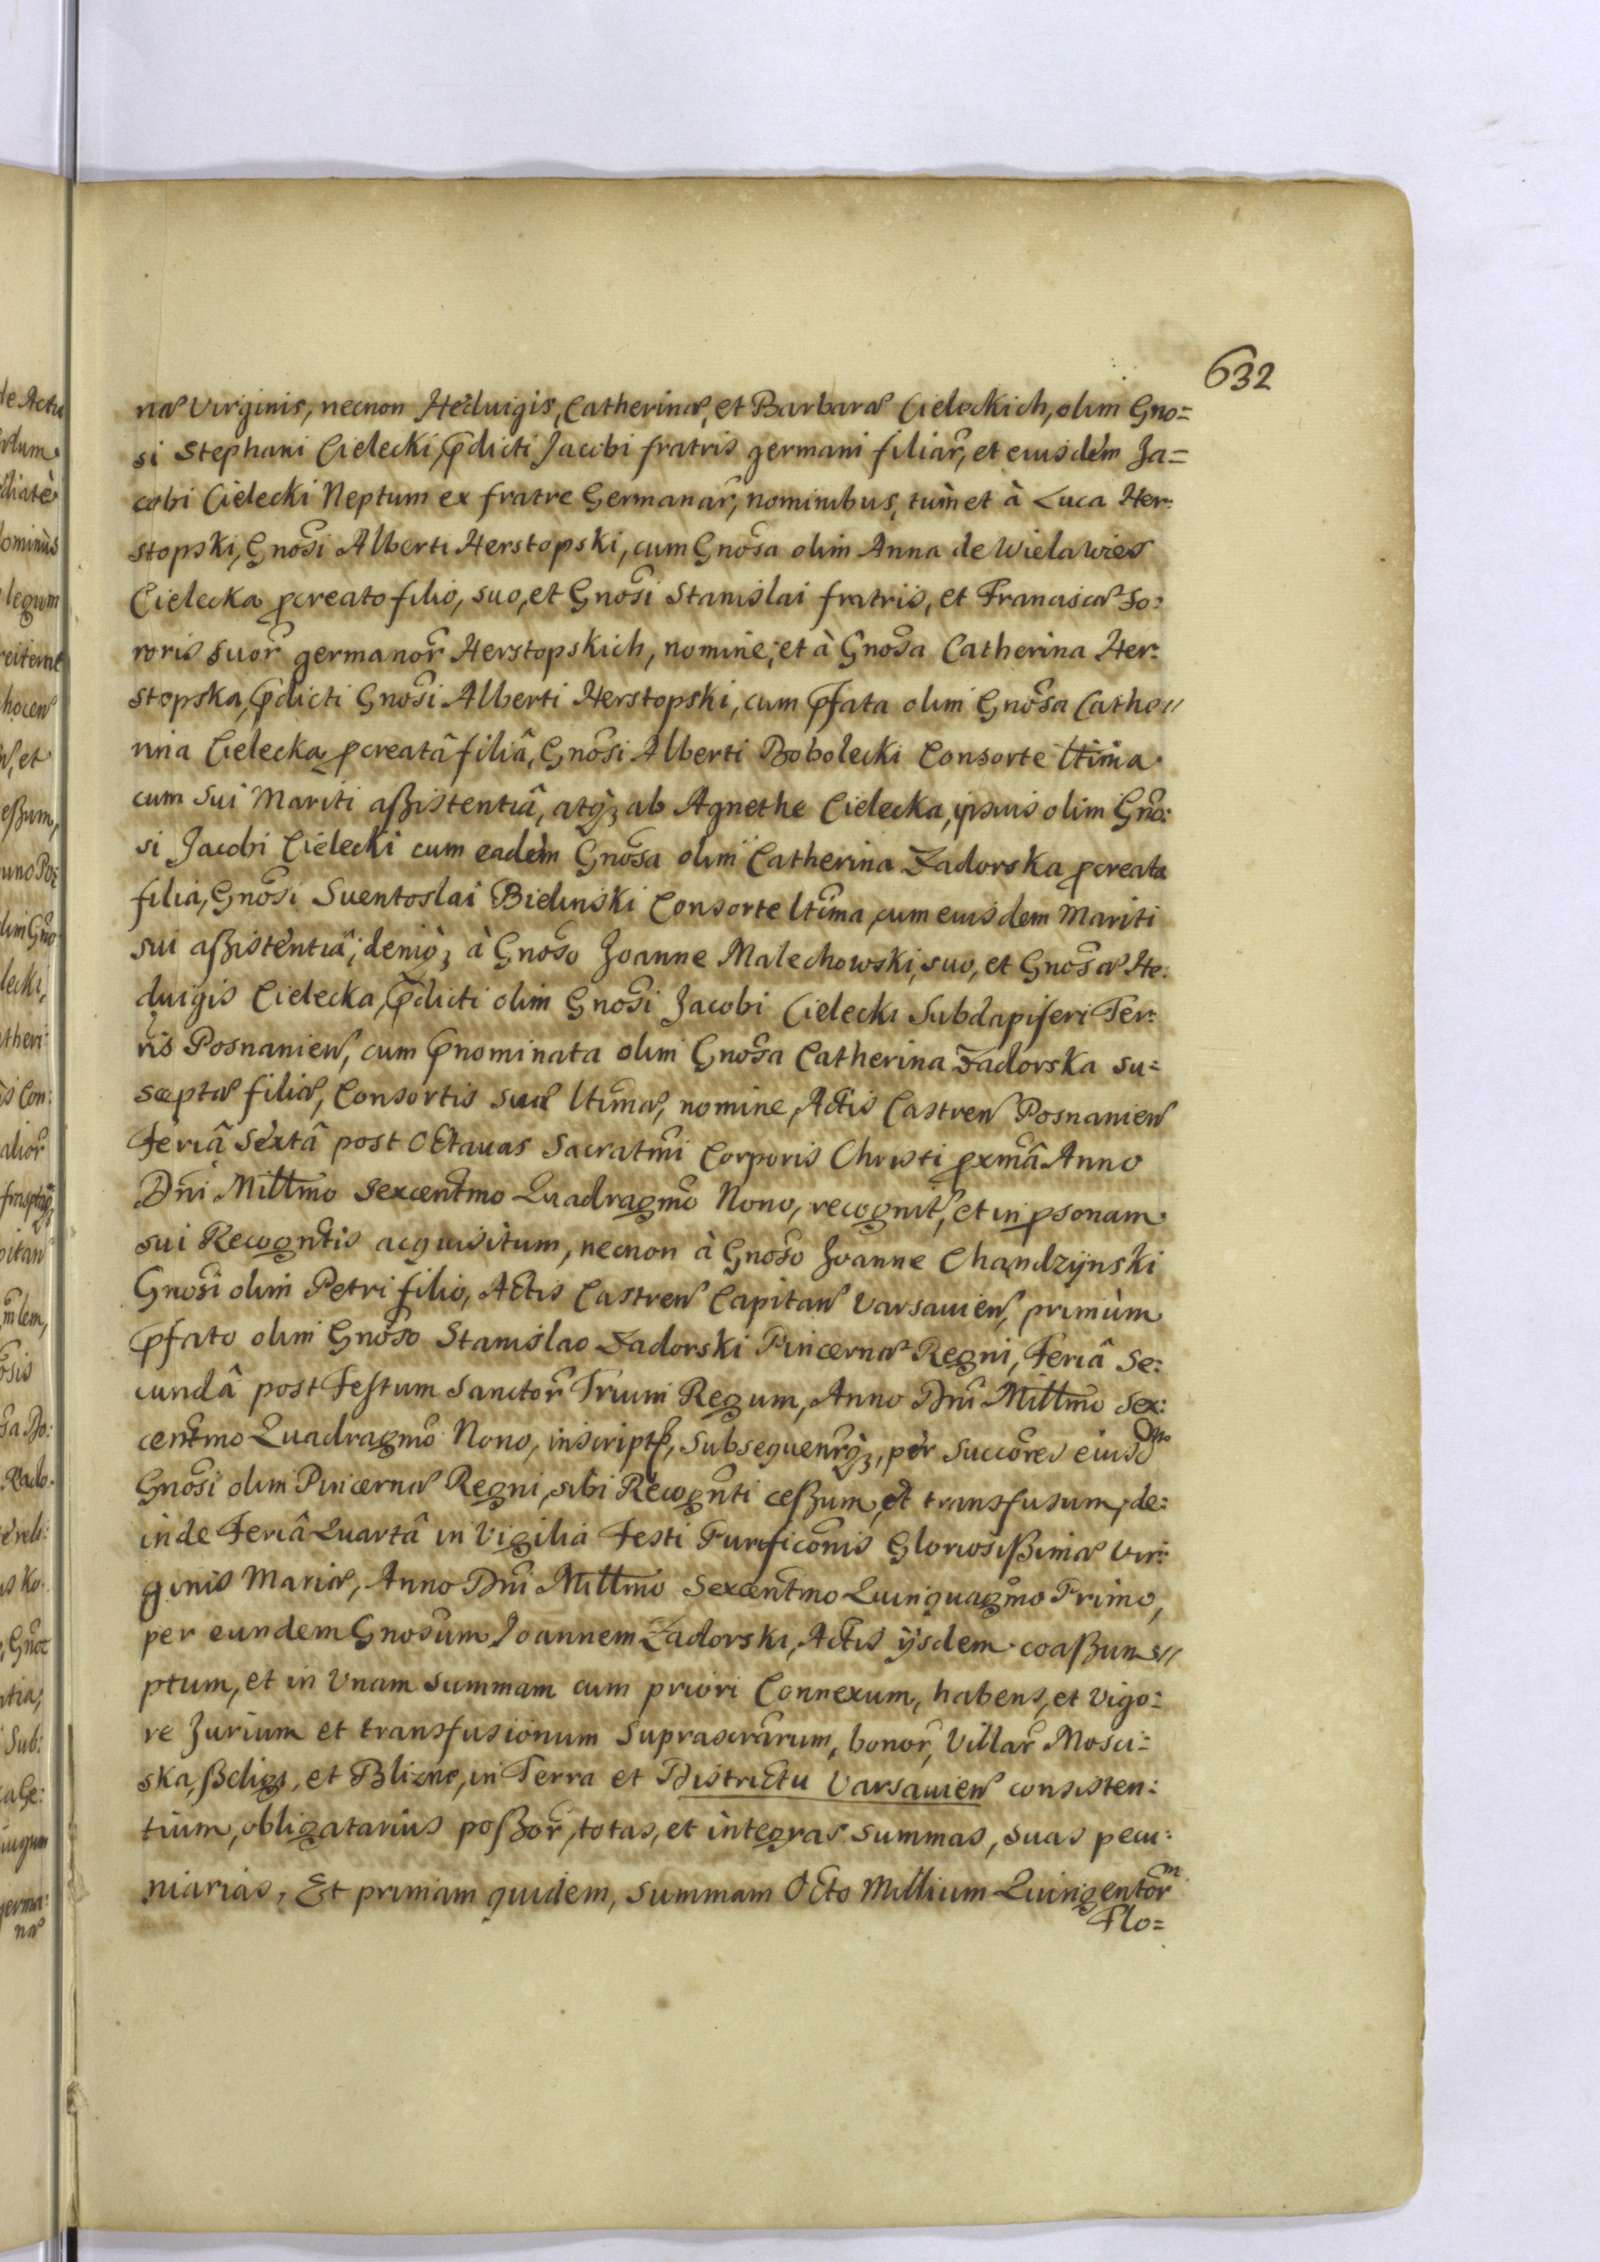 632
næ Virginis, necnon Heduigis, Catherinæ, et Barbaræ Cieleckich, olim Gno=
si Stephani Cielecki, p̃dicti Jacobi fratris germani filiar̃, et eiusdem Ja=
cobi Cielecki Neptum ex fratre Germanar̃, nominibus, tùm et à Luca Her:
stopski, Gnõsi Alberti Herstopski, cum Gnõsa olim Anna de Wielawies
Cielecka p̃creato filio, suo, et Gnõsi Stanislai fratris, et Franciscæ So:
roris suor̃ germanor̃ Herstopskich, nomine; et à Gnõsa Catherina Her:
stopska, p̃dicti Gnõsi Alberti Herstopski, cum p̃fata olim Gnõsa Cathe//
rina Cielecka p̃creatâ filiâ, Gnõsi Alberti Bobolecki Consorte ltĩma
cum Sui Mariti aßistentiâ, atq; ab Agnethe Cielecka, ipsius olim Gnõ:
si Jacobi Cielecki cum eadèm Gnõsa olim Catherina Zadorska p̃creata
filia, Gnõsi Suentoslai Bielinski Consorte ltĩma, cum eiusdem Mariti
sui aßistentiâ; deniq; à Gnõso Joanne Malechowski, suo, et Gnõsæ He:
duigis Cielecka, p̃dicti olim Gnõsi Jacobi Cielecki Subdapiferi Ter:
ris Posnanien, cum p̃nominata olim Gnõsa Catherina Zadorska su=
sceptæ filiæ, Consortis suæ ltĩmæ, nomine, Actis Castren Posnanien
Feriâ Sextâ post Octauas Sacratm̃i Corporis Christi p̃xmâ Anno
Dñi Millm̃o Sexcentm̃o Quadragm̃o Nono, recognit, et in p̃sonam
sui Recogñtis acquisitum, necnon à Gnõso Joanne Chandzynski
Gnõsi olim Petri filio, Actis Castren Capitan Varsauien, primùm
p̃fato olim Gnõso Stanislao Zadorski Pincernæ Regni, Feriâ Se:
cundâ post Festum Sanctor̃ Trium Regum, Anno Dñi Millm̃o Sex:
centm̃o Quadragm̃o Nono, inscript, Subsequentq;, pèr Succõres eiusd
Gnõsi olim Pincernæ Regni, sibi Recogñti ceßum, et transfusum, de:
inde Feriâ Quartâ in Vigilia Festi Purificõnis Gloriosißimæ Vir:
ginis Mariæ, Anno Dñi Millm̃o Sexcentm̃o Quinquagm̃o Primo,
per eundem Gnosum Joannem Zadorski, Actis ijsdem coaßum//
ptum, et in Vnam Summam cum priori Connexum, habens, et Vigo:
re Jurium et transfusionum Suprascrãrum, bonor̃, Villar̃ Mosci=
ska, ßeligi, et Blizne, in Terra et Districtu Varsauien consisten:
tium, obligatarius poßor̃, totas, et integras Summas, suas pecu:
niarias, Et primam quidem, Summam Octo Millium Quingentor̃m
Flo=